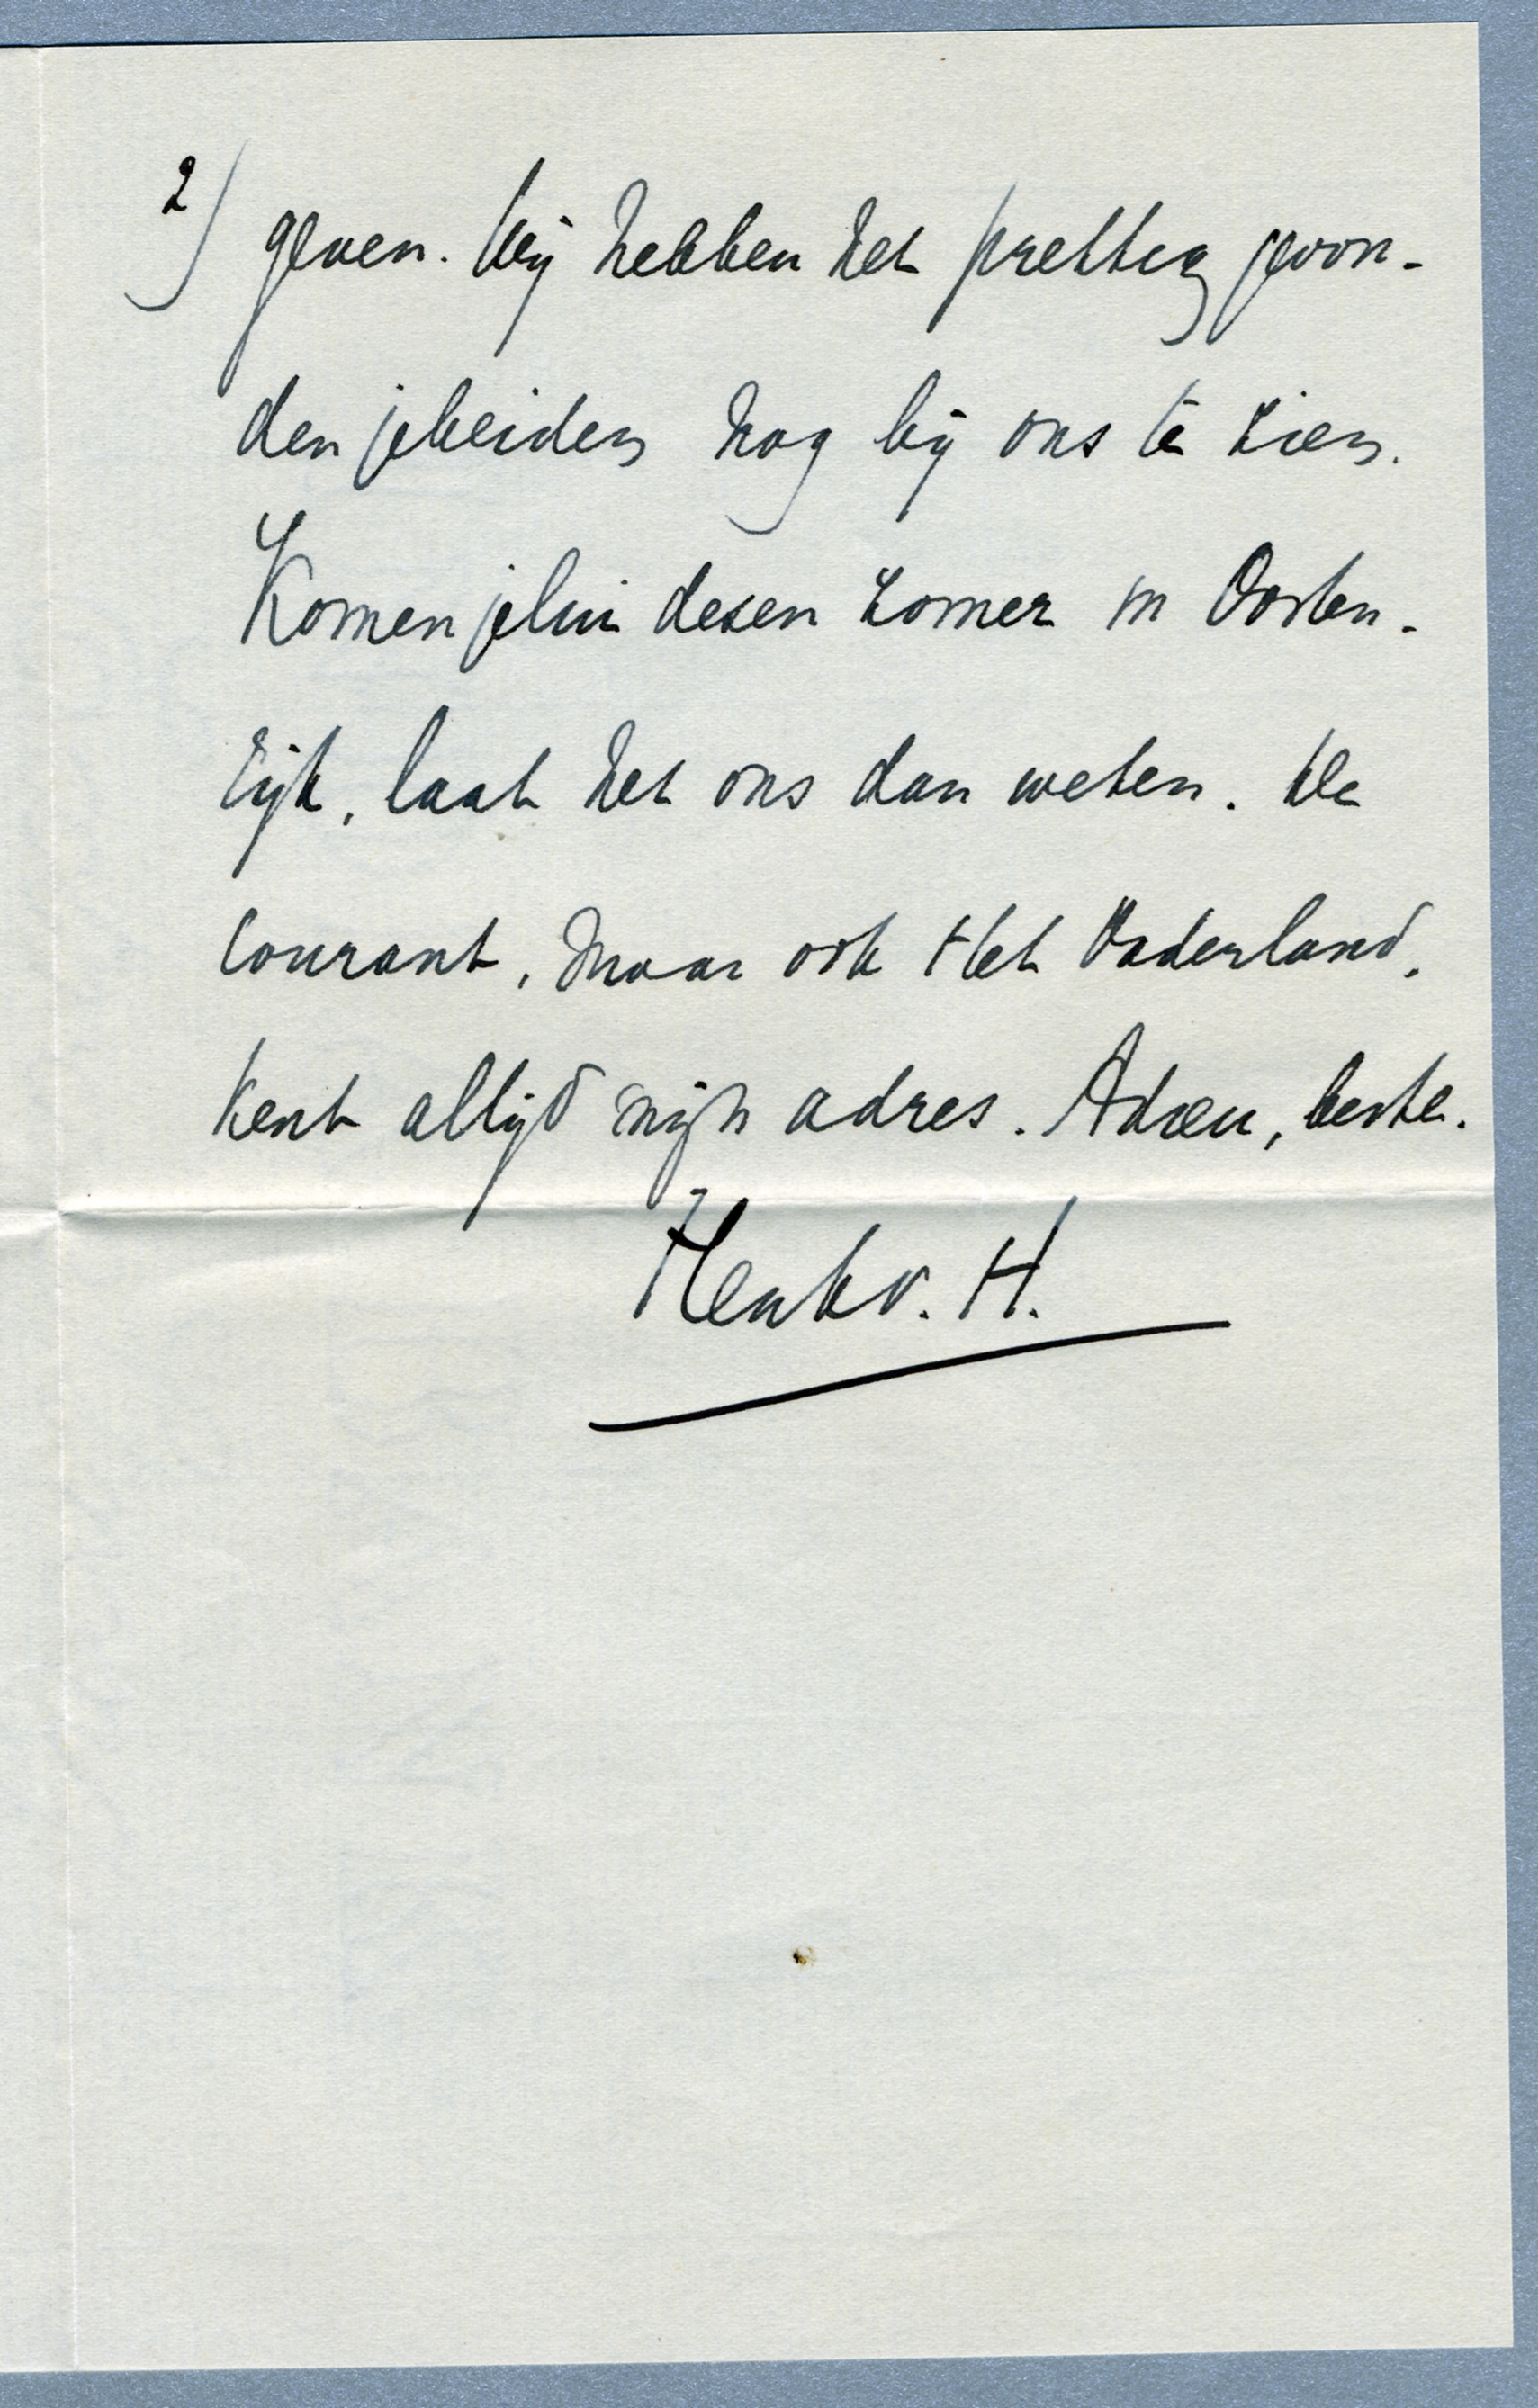 2) geven. Wij hebben het prettig gevon-
den jebeiden nog bij ons te zien.
Komen jelui dezen zomer in Oosten-
rijk, laat het ons dan weten. De
courant, maar ook Het Vaderland,
kent altijd mijn adres. Adieu, beste.
Henk v. H.